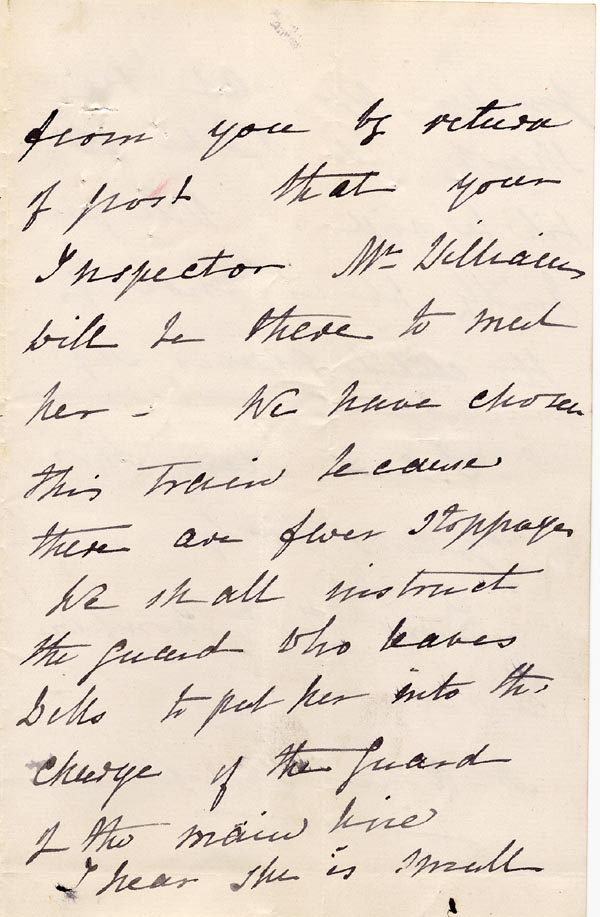 from you by return
of post that your
Inspector Mr Williams
will be there to meet
her - We have chosen
this train because
there are fewer stoppages
We shall instruct
the guard who leaves
Wells to put her into the
charge of the Guard
of the main line
I hear she is small